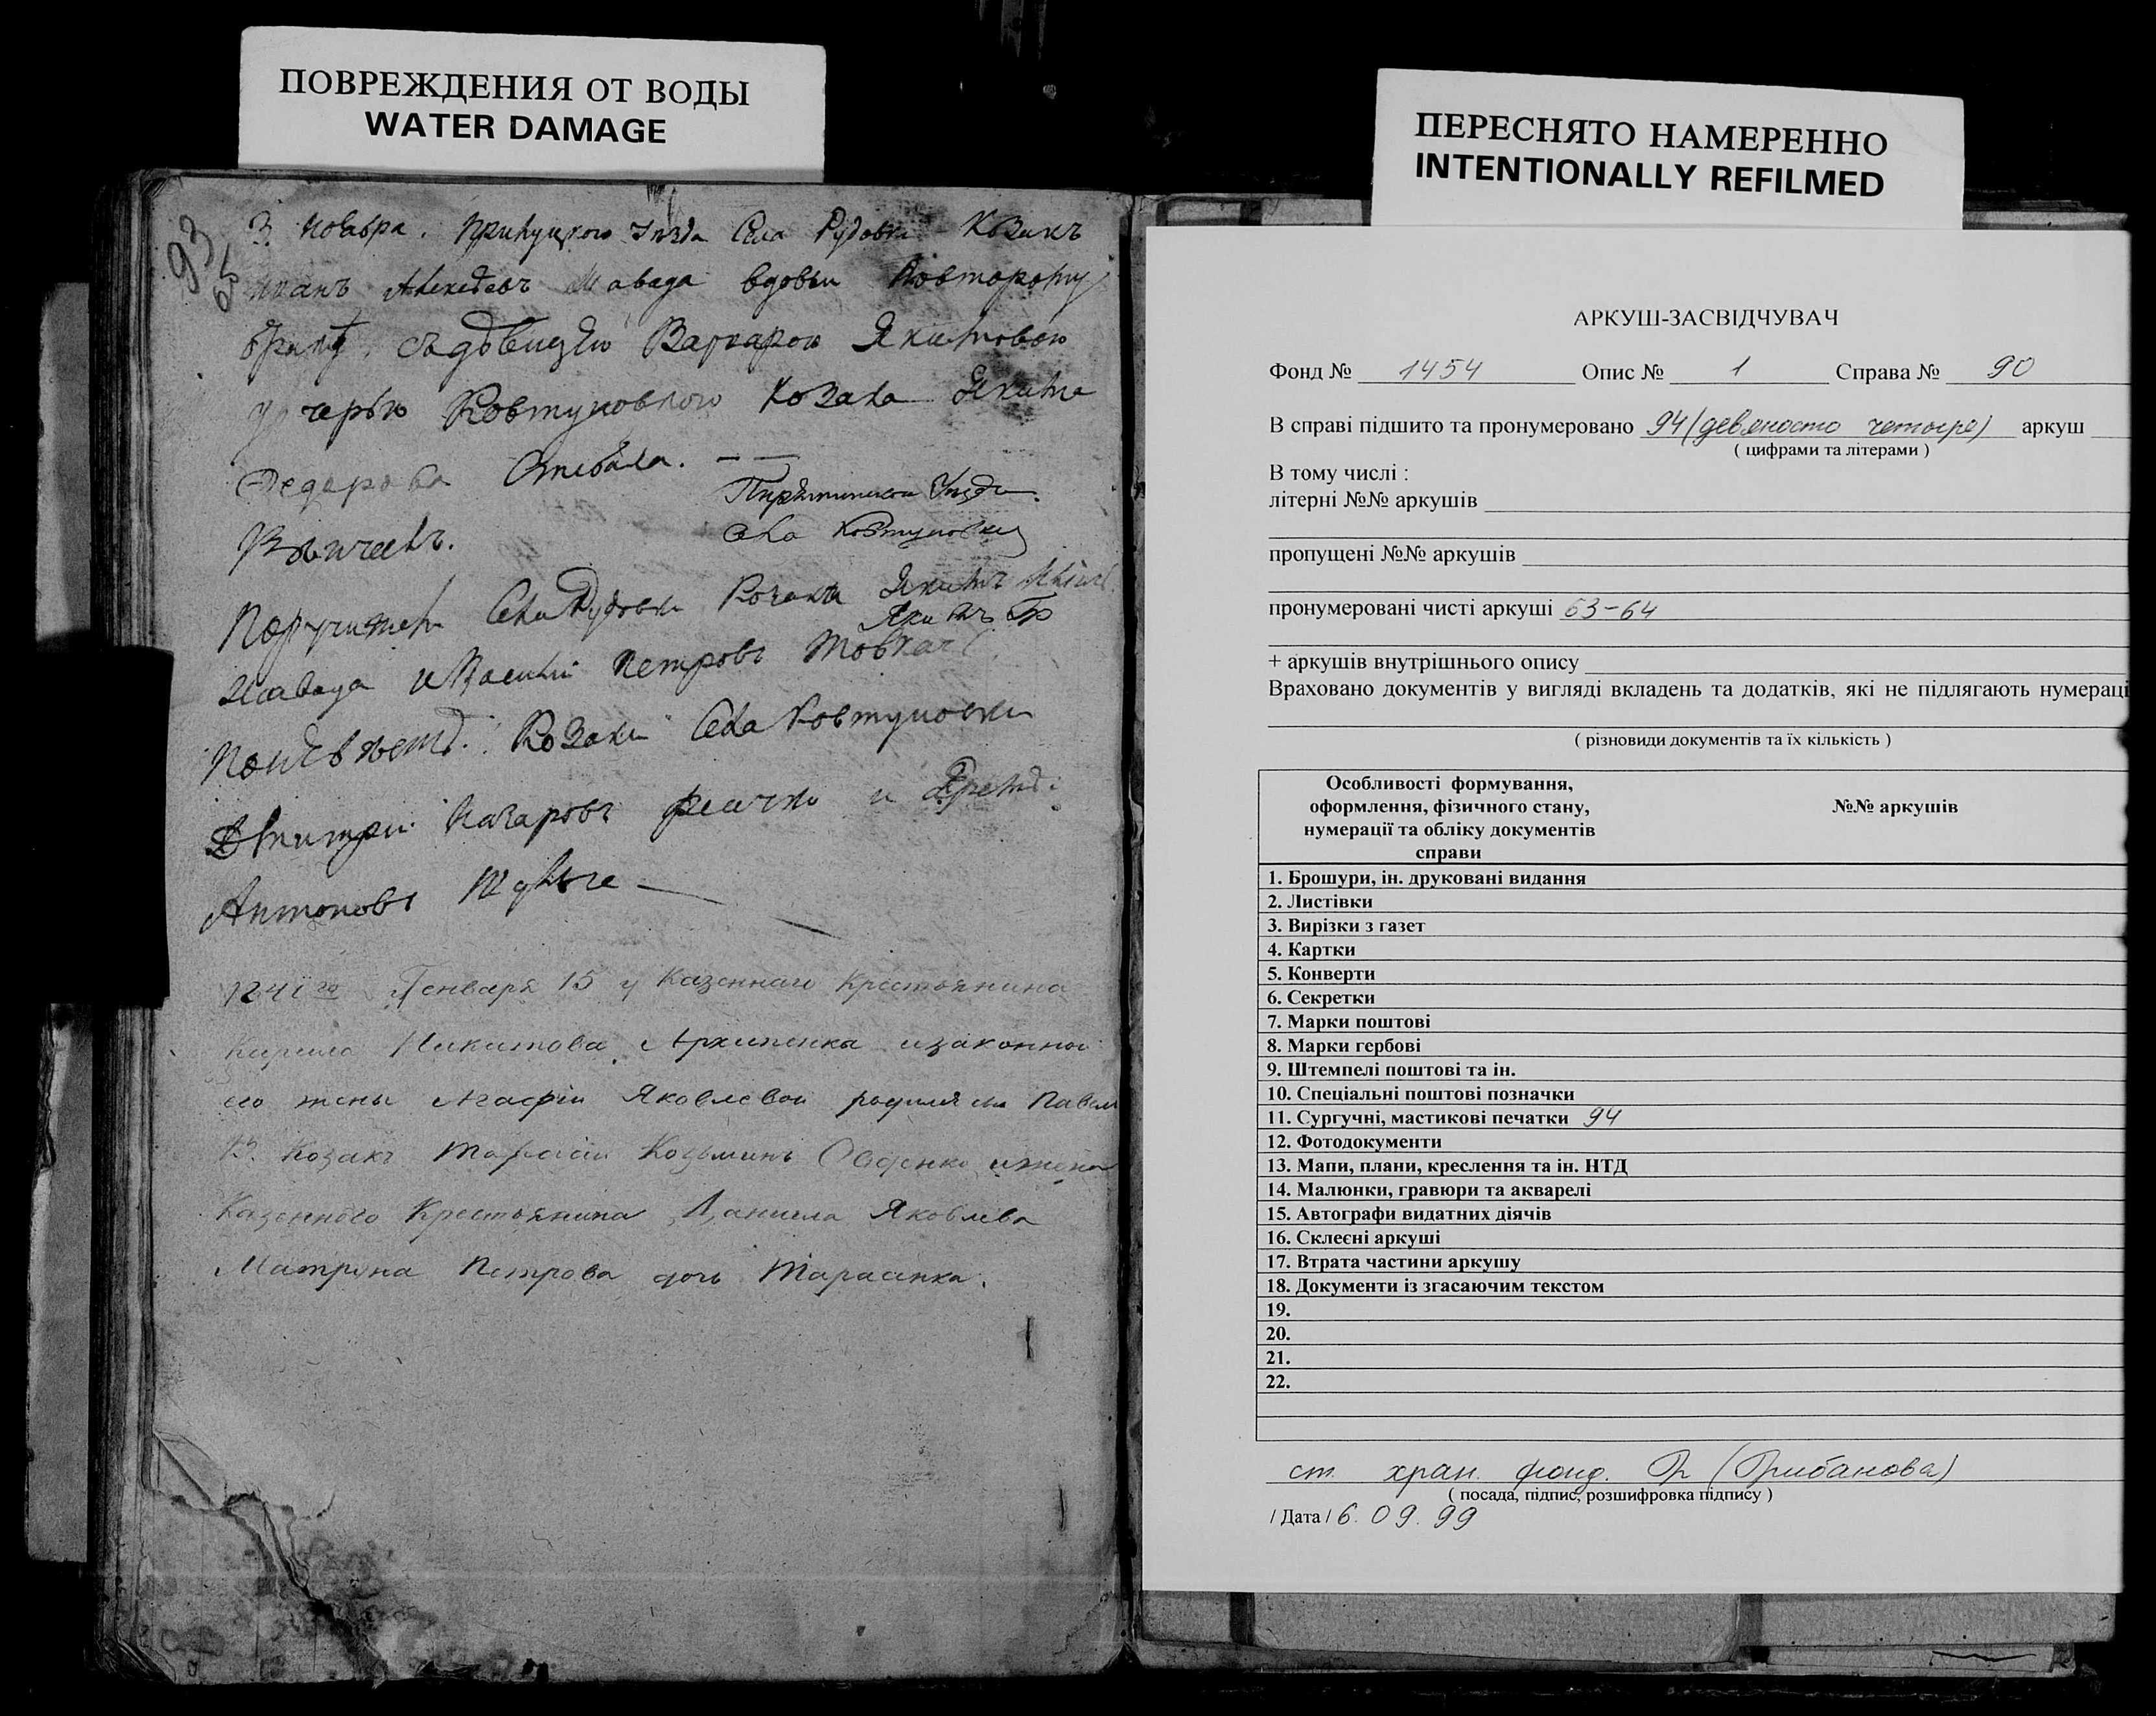 ПОВРЕЖДЕНИЯ ОТ ВОДЫ
WATER DAMAGE
93
3. Ноября. Прилуцкого Уезда Села Рудовки Козакъ
вдовы повторому
браку, съ девицею Варварою Якимовою
Козака Якима
Федорова
Пирятинского Уезда
Села Ковтуновки
Венчалъ.
Поручители Села Рудовки Козаки Якимъ
и Василий Петровъ Товкачъ
Козаки Села Ковтуновки
Дмитрий Назаровъ и
Антоновъ
1841го Генваря 15 у Казеннаго Крестьянина
Кирила Никитова Архипенка изаконной
его жены Агафіи Яковлевой родился сын Павелъ
В. Козакъ Козьминъ ижена
Казенного Крестьянина Данила Яковлева
Матрона Петрова дочь Тарасенка.
ПЕРЕСНЯТО НАМЕРЕННО
INTENTIONALLY REFILMED
АРКУШ-ЗАСВІДЧУВАЧ
Фонд № 1454 Опис № 1 Справа № 90
В справі підшито та пронумеровано 94 (девяносто четыре) аркуш
( цифрами та літерами )
В тому числі :
літерні №№ аркушів
пропущені №№ аркушів
пронумеровані чисті аркуші 63-64
+ аркушів внутрішнього опису
Враховано документів у вигляді вкладень та додатків, які не підлягають нумераці
( різновиди документів та їх кількість )
Особливості формування,
оформлення, фізичного стану,
нумерації та обліку документів
справи
№№ аркушів
1. Брошури, ін. друковані видання
2. Листівки
3. Вирізки з газет
4. Картки
5. Конверти
6. Секретки
7. Марки поштові
8. Марки гербові
9. Штемпелі поштові та ін.
10. Спеціальні поштові позначки
11. Сургучні, мастикові печатки 94
12. Фотодокументи
13. Мапи, плани, креслення та ін. НТД
14. Малюнки, гравюри та акварелі
15. Автографи видатних діячів
16. Склеєні аркуші
17. Втрата частини аркушу
18. Документи із згасаючим текстом
19.
20.
21.
22.
ст. хран. фонд. (Грибанова)
( посада, підпис, розшифровка підпису )
/ Дата / 6.09.99